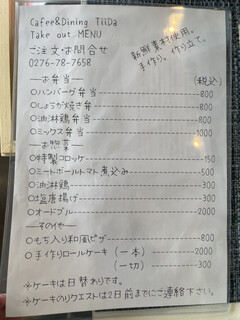 Cafee&Dining TiiDa
Take out MENU
ご注文・お問合せ
0276-78-7658
新鮮素材使用。
手作り。作り立て。
―お弁当― (税込)
〇ハンバーグ弁当 800
〇しょうが焼き弁 800
〇油淋鶏弁当 800
〇ミックス弁当 1000
―お惣菜―
〇特製コロッケ 150
〇ミートボールトマト煮込み 500
〇油淋鶏 300
〇塩唐揚げ 300
〇オードブル 2000
―その他―
〇もち入り和風ピザ 800
〇手作りロールケーキ (一本) 2000
(一切) 300
※ケーキは日替わりです。
※ケーキのリクエストは2日前までにご連絡下さい。